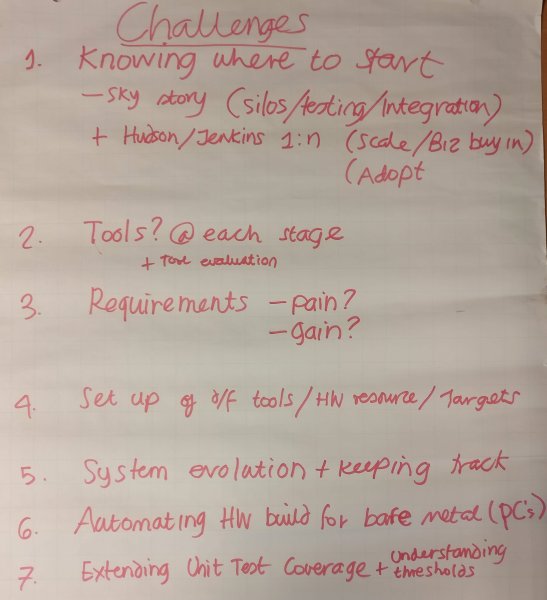 Challenges
1. Knowing where to start
- Sky story (silos/testing/Integration)
+ Hudson/Jenkins 1:n (Scale/Biz buy in)
(Adopt
2. Tools? @ each stage
+ Tool evaluation
3. Requirements - pain?
- gain?
4. Set up of tools/HW resource/Targets
5. System evolation + keeping track
6. Automating HW build for bare metal (PC's)
7. Extending Unit Test Coverage + understanding
thresholds